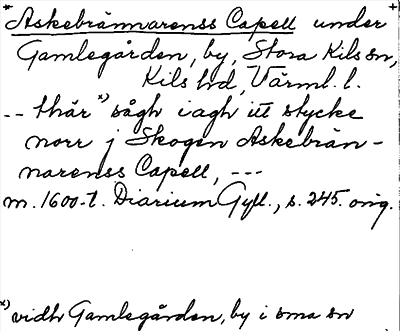 Askebrännarenss Capell under
Gamlegården, by, Stora Kils sn,
Kils hd, Värml. l.
-- thär x) sågh iagh itt stycke
norr j Skogen Askebrän-
narenss Capell, ---
m. 1600-t. Diarium Gyll., s. 245. orig.
x) vidh Gamlegården, by i sma sn